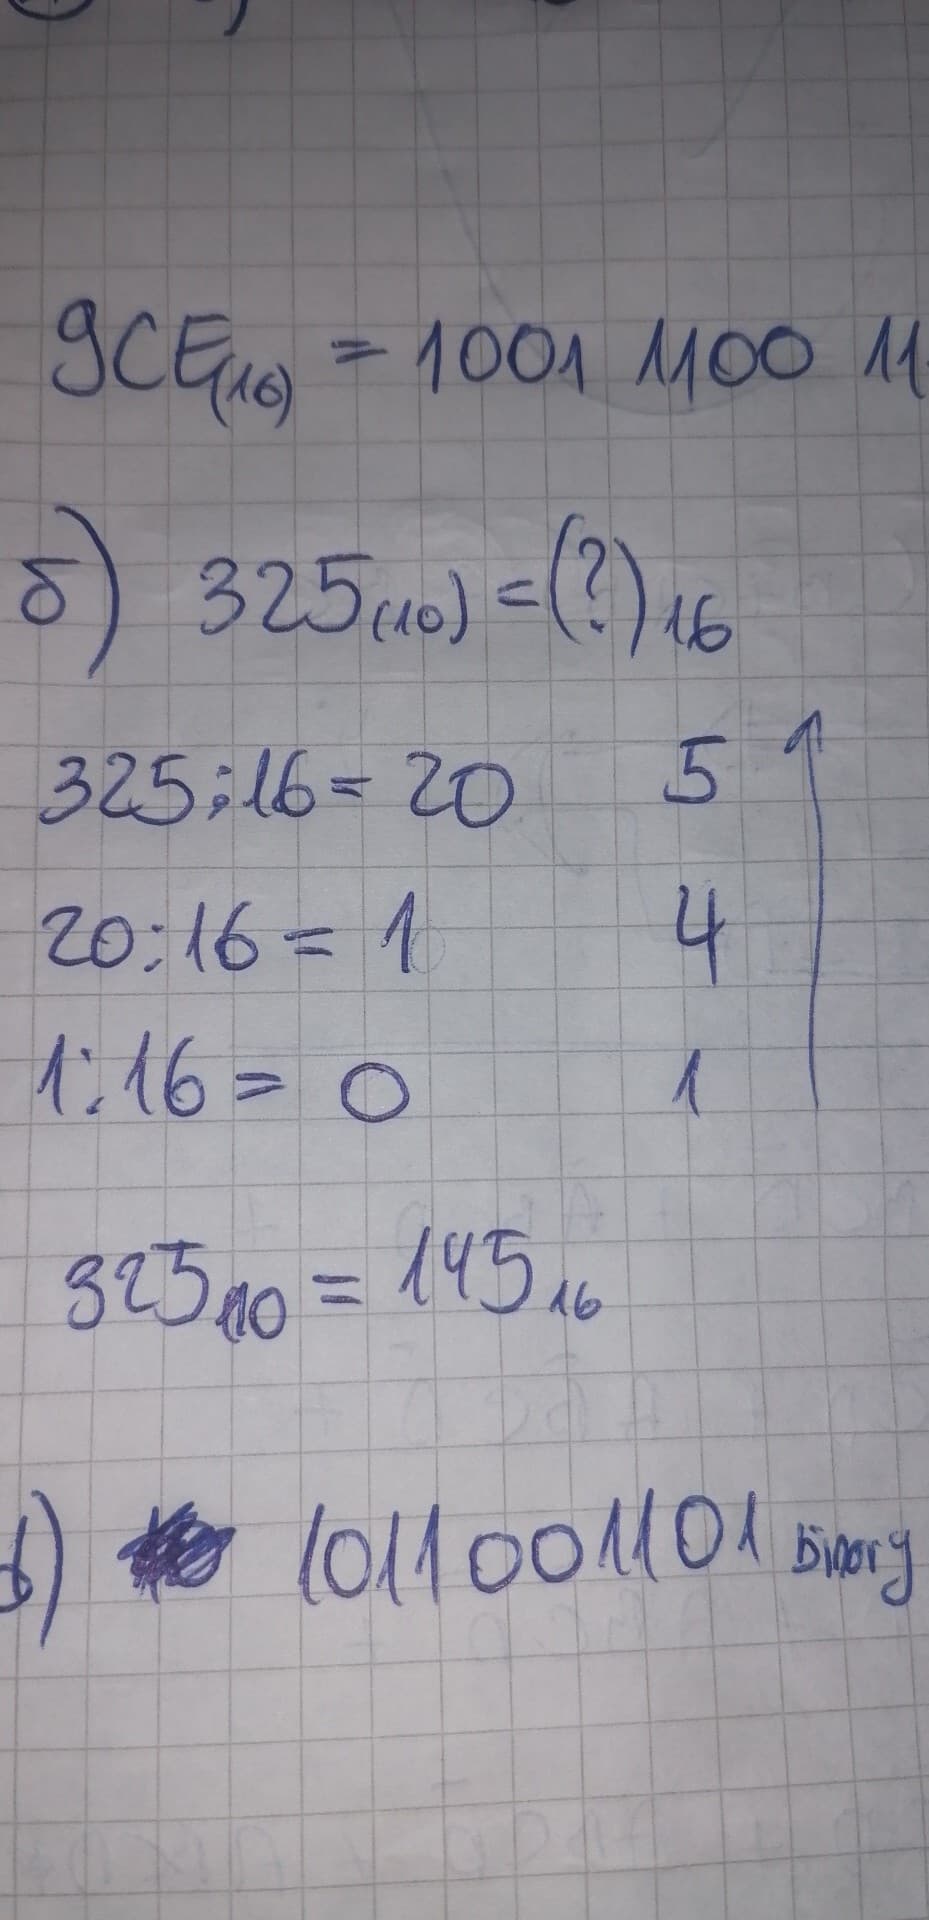 9CE(16) = 1001 1100 11
б) 325(10) = (?)16
325:16 = 20 5
20:16 = 1 4
1:16 = 0 1
32510 = 14516
в) 1011001101 binary